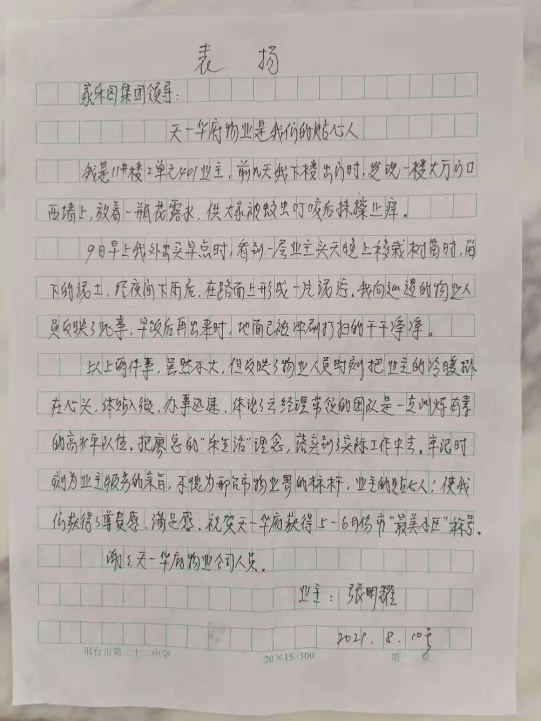 表扬
家乐园集团领导:
天一华府物业是我们的贴心人
我是11#楼2单元401业主,前几天我下楼出门时,发现一楼大厅门口
西墙上,放着一瓶花露水,供大家被蚊虫叮咬后抹搽止痒。
9日早上我外出买早点时,看到一层业主头天晚上移栽树苗时,留
下的泥土,经夜间下雨后,在路面上形成一片泥污。我向巡逻的物业人
员反映了此事,早饭后再出来时,地面已被冲刷打扫的干干净净。
以上两件事,虽然不大,但反映了物业人员时刻把业主的冷暖挂
在心头,体贴入微,办事迅速,体现了云经理带领的团队是一支训练有素
的高水平队伍。把廖总的“乐生活”理念,落实到了实际工作中去。牢记时
刻为业主服务的宗旨,不愧为邢台市物业界的标杆,业主的贴心人!使我
们获得了尊贵感,满足感。祝贺天一华府获得5-6月份市“最美小区”称号。
谢谢天一华府物业公司人员。
业主:张明耀
2021.8.10号
邢台市第二十二中学 20×15=300 第 页